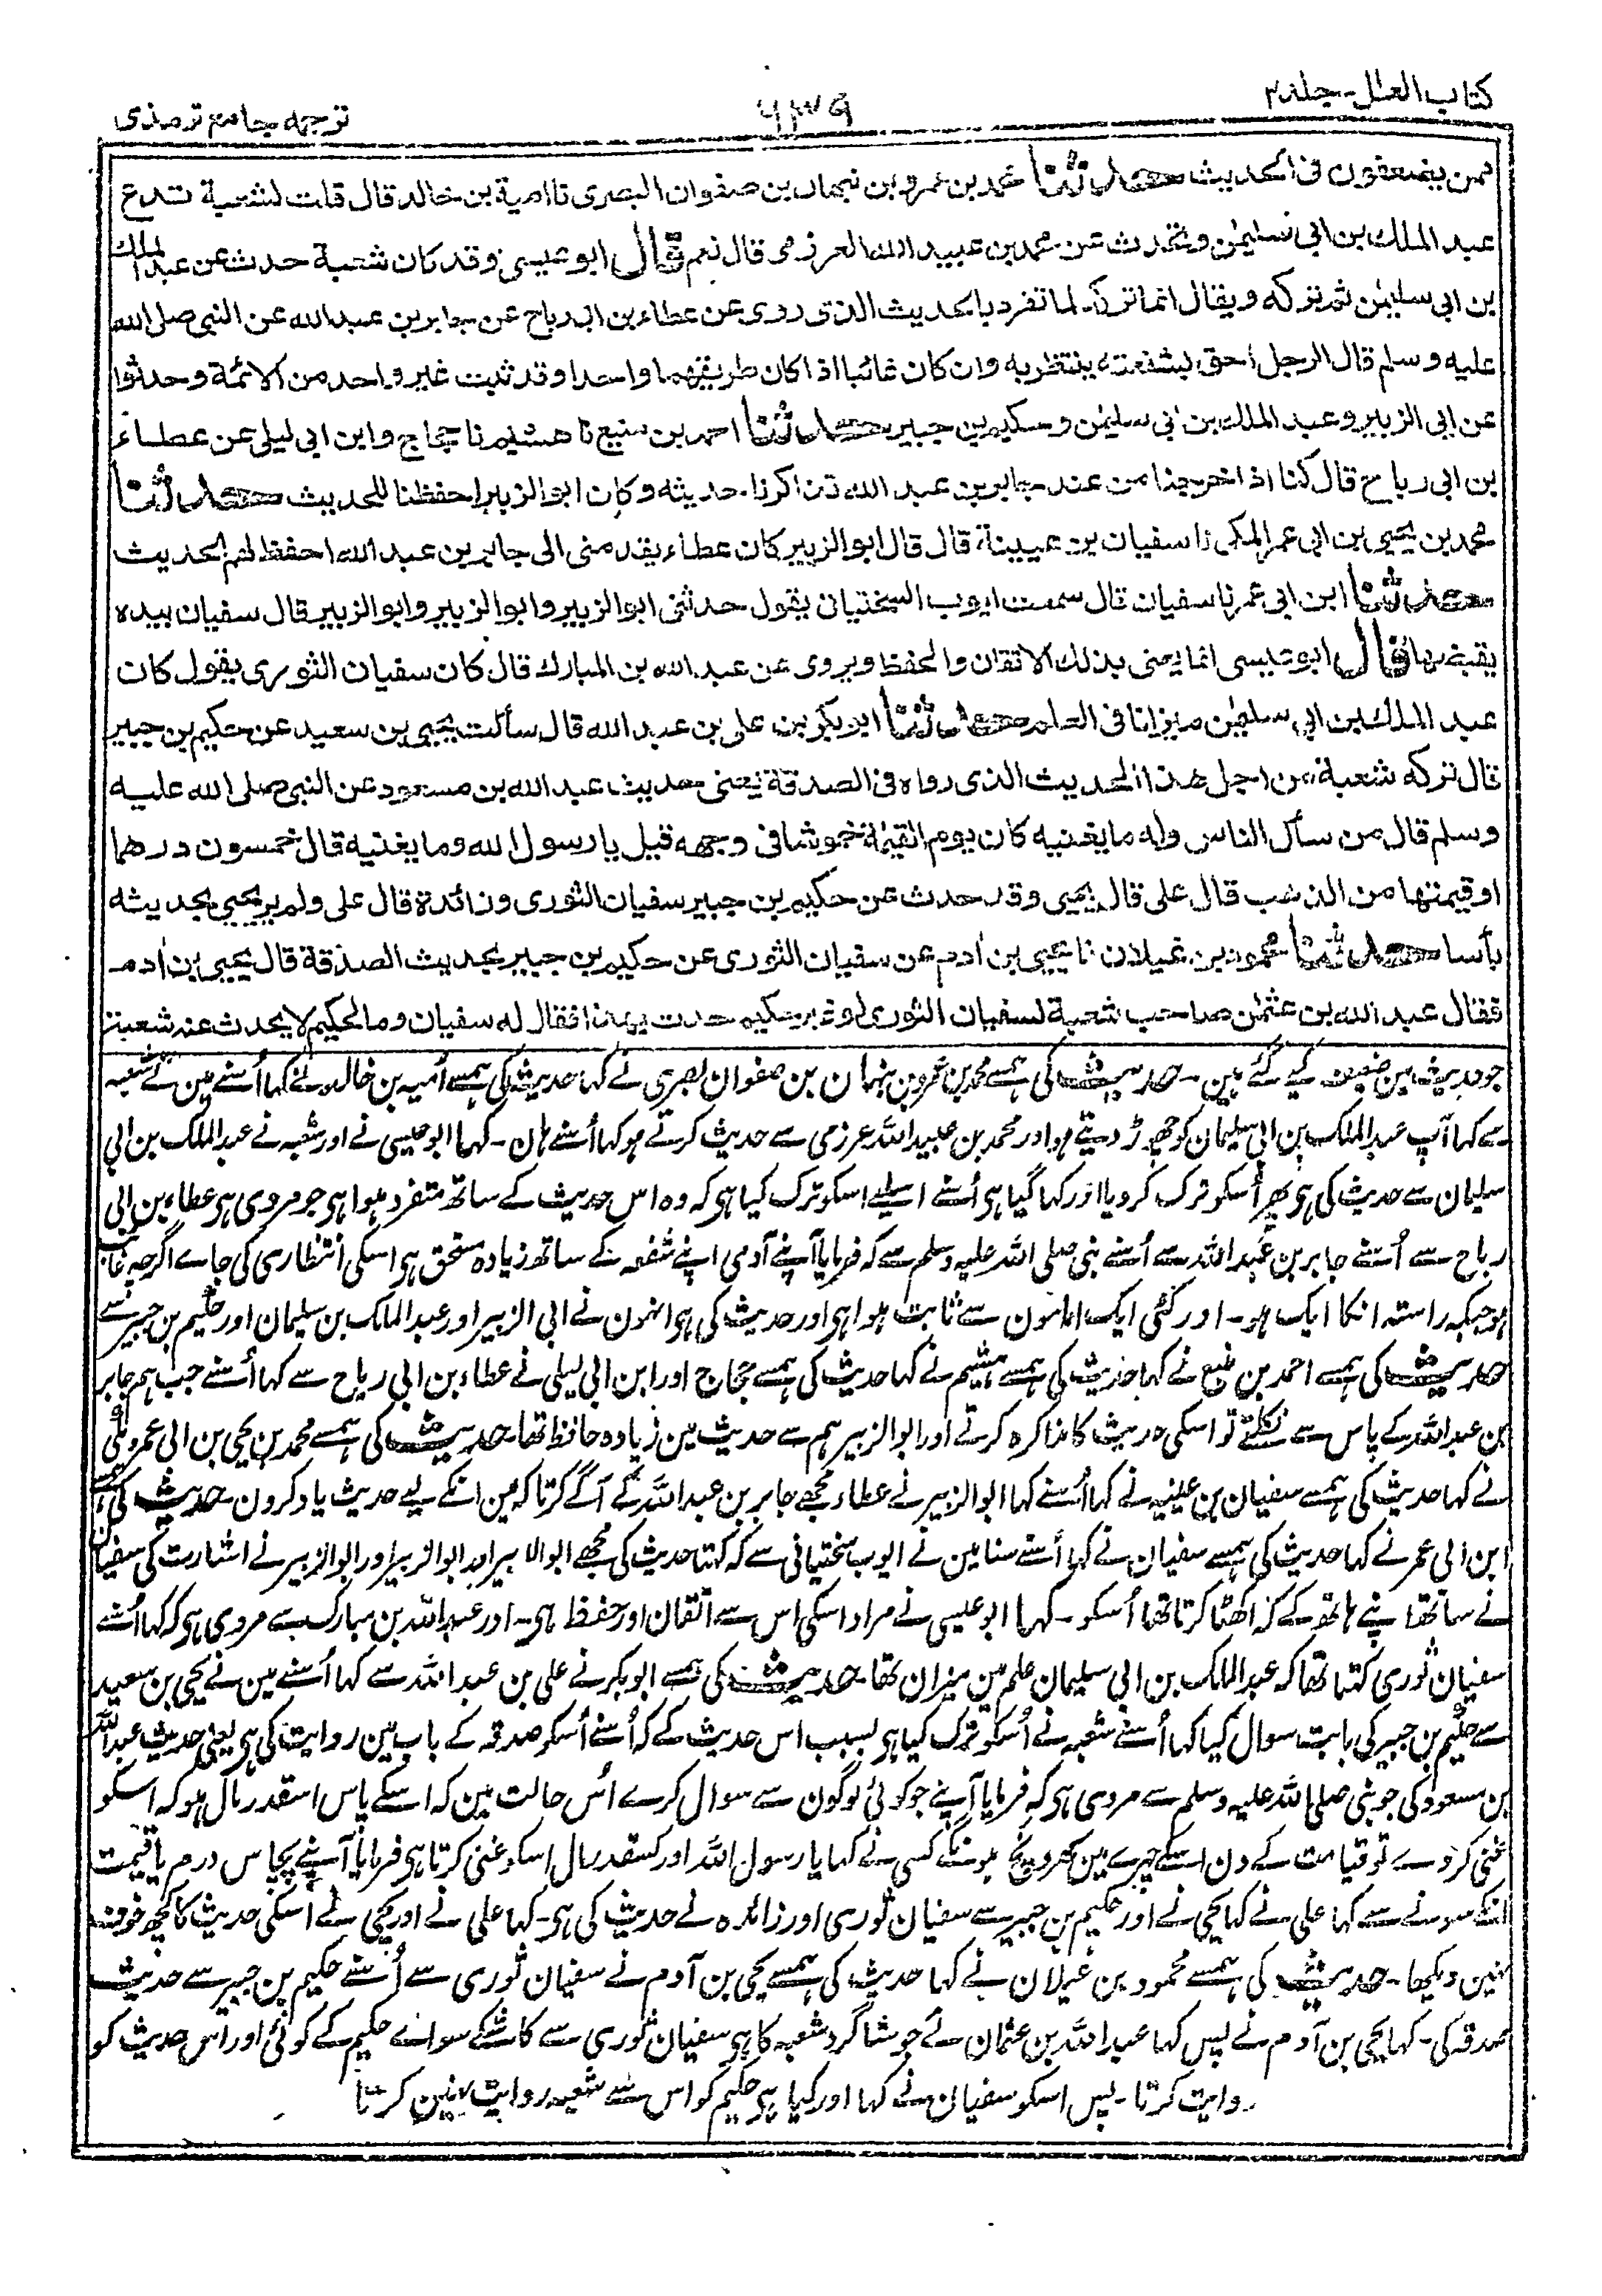 کتاب العلل۔جلد۲
۶۳۹
ترجمه جامع ترمذی
فمن یضعفون فی الحدیث حدثنا محمد بن عمرو بن نبهان بن صفوان البصری نا امیة بن خالد قال قلت لشعبة تدع
عبد الملك بن ابی سلیمٰن وتحدث عن محمد بن عبید الله العرزمی قال نعم قال ابو عیسی وقد کان شعبة حدث عن عبد الملك
بن ابی سلیمٰن ثم ترکه ویقال انما ترکه لما تفرد بالحدیث الذی روی عن عطاء بن ابی رباح عن جابر بن عبد الله عن النبی صلی الله
علیه وسلم قال الرجل احق بشفعته ینتظر به وان کان غائبا اذا کان طریقهما واحدا وقد ثبت غیر واحد من الائمة وحدثوا
عن ابی الزبیر وعبد الملك بن ابی سلیمٰن وحکیم بن جبیر حدثنا احمد بن منیع نا هشیم نا حجاج وابن ابی لیلی عن عطاء
بن ابی رباح قال کنا اذا خرجنا من عند جابر بن عبد الله تذاکرنا حدیثه وکان ابو الزبیر احفظنا للحدیث حدثنا
محمد بن یحیی بن ابی عمر المکی نا سفیان بن عیینة قال قال ابو الزبیر کان عطاء یقدمنی الی جابر بن عبد الله احفظ لهم الحدیث
حدثنا ابن ابی عمر نا سفیان قال سمعت ایوب السختیانی یقول حدثنی ابو الزبیر وابو الزبیر وابو الزبیر قال سفیان بیده
یقبضها قال ابو عیسی انما یعنی بذلك الاتقان والحفظ ویروی عن عبد الله بن المبارك قال کان سفیان الثوری یقول کان
عبد الملك بن ابی سلیمٰن میزانا فی العلم حدثنا ابو بکر بن علی بن عبد الله قال سألت یحیی بن سعید عن حکیم بن جبیر
قال ترکه شعبة من اجل هذا الحدیث الذی رواه فی الصدقة یعنی حدیث عبد الله بن مسعود عن النبی صلی الله علیه
وسلم قال من سأل الناس وله ما یغنیه کان یوم القیٰمة خموشا فی وجهه قیل یا رسول الله وما یغنیه قال خمسون درهما
او قیمتها من الذهب قال علی قال یحیی وقد حدث عن حکیم بن جبیر سفیان الثوری وزائدة قال علی ولم یر یحیی بحدیثه
بأسا حدثنا محمود بن غیلان نا یحیی بن اٰدم عن سفیان الثوری عن حکیم بن جبیر بحدیث الصدقة قال یحیی بن اٰدم
فقال عبد الله بن عثمٰن صاحب شعبة لسفیان الثوری لو غیر حکیم حدث بهذا فقال له سفیان وما لحکیم لا یحدث عنه شعبة
جو حدیث مین ضعیف کیے گئے ہین۔ حدیث کی ہمسے محمد بن عمرو بن نبہان بن صفوان بصری نے کہا حدیث کی ہمسے اُمیہ بن خالد نے کہا اُسنے مین نے شعبہ
سے کہا آپ عبد الملک بن ابی سلیمان کو چھوڑ دیتے ہو اور محمد بن عبید اللہ عرزمی سے حدیث کرتے ہو کہا اُسنے ہان۔ کہا ابو عیسی نے اور شعبہ نے عبد الملک بن ابی
سلیمان سے حدیث کی ہی پھر اُسکو ترک کر دیا اور کہا گیا ہی اُسنے اسلیے اسکو ترک کیا ہی کہ وہ اس حدیث کے ساتھ متفرد ہوا ہی جو مروی ہی عطاء بن ابی
رباح سے اُسنے جابر بن عبد اللہ سے اُسنے نبی صلی اللہ علیہ وسلم سے کہ فرمایا آپنے آدمی اپنے شفعہ کے ساتھ زیادہ مستحق ہی اسکی انتظاری کی جاے اگرچہ غائب
ہو جبکہ راستہ انکا ایک ہو۔ اور کئی ایک امامون سے ثابت ہوا ہی اور حدیث کی ہی انہون نے ابی الزبیر اور عبد الملک بن سلیمان اور حکیم بن جبیر سے
حدیث کی ہمسے احمد بن منیع نے کہا حدیث کی ہمسے ہشیم نے کہا حدیث کی ہمسے حجاج اور ابن ابی لیلی نے عطاء بن ابی رباح سے کہا اُسنے جب ہم جابر
بن عبد اللہ کے پاس سے نکلتے تو اسکی حدیث کا مذاکرہ کرتے اور ابو الزبیر ہم سے حدیث مین زیادہ حافظ تھا۔ حدیث کی ہمسے محمد بن یحیی بن ابی عمر مکی
نے کہا حدیث کی ہمسے سفیان بن عیینہ نے کہا اُسنے کہا ابو الزبیر نے عطاء مجھے جابر بن عبد اللہ کے آگے کرتا کہ مین انکے لیے حدیث یاد کرون۔ حدیث کی ہمسے
ابن ابی عمر نے کہا حدیث کی ہمسے سفیان نے کہا اُسنے سنا مین نے ایوب سختیانی سے کہ کہتا حدیث کی مجھے ابو الزبیر اور ابو الزبیر اور ابو الزبیر نے اشارت کی سفیان
نے ساتھ اپنے ہاتھ کے کہ اکھٹا کرتا تھا اُسکو۔ کہا ابو عیسی نے مراد اسکی اس سے اتقان اور حفظ ہی۔ اور عبد اللہ بن مبارک سے مروی ہی کہ کہا اُسنے
سفیان ثوری کہتا تھا کہ عبد الملک بن ابی سلیمان علم مین میزان تھا۔ حدیث کی ہمسے ابو بکر نے علی بن عبد اللہ سے کہا اُسنے مین نے یحیی بن سعید
سے حکیم بن جبیر کی بابت سوال کیا کہا اُسنے شعبہ نے اُسکو ترک کیا ہی بسبب اس حدیث کے کہ اُسنے اُسکو صدقہ کے باب مین روایت کی ہی یعنی حدیث عبد اللہ
بن مسعود کی جو نبی صلی اللہ علیہ وسلم سے مروی ہی کہ فرمایا آپنے جو کوئی لوگون سے سوال کرے اُس حالت مین کہ اسکے پاس اسقدر مال ہو کہ اسکو
غنی کر دے تو قیامت کے دن اسکے چہرے مین کھرونچ ہونگے کسی نے کہا یا رسول اللہ اور کسقدر مال اسکو غنی کرتا ہی فرمایا آپنے پچاس درم یا قیمت
انکے سونے سے کہا علی نے کہا یحیی نے اور حکیم بن جبیر سے سفیان ثوری اور زائدہ نے حدیث کی ہی۔ کہا علی نے اور یحیی نے اسکی حدیث کا کچھ خوف
نہین دیکھا۔ حدیث کی ہمسے محمود بن غیلان نے کہا حدیث کی ہمسے یحیی بن آدم نے سفیان ثوری سے اُسنے حکیم بن جبیر سے حدیث
صدقہ کی۔ کہا یحیی بن آدم نے پس کہا عبد اللہ بن عثمان نے جو شاگرد شعبہ کا ہی سفیان ثوری سے کاشکے سواے حکیم کے کوئی اور اس حدیث کو
روایت کرتا۔ پس اسکو سفیان نے کہا اور کیا ہی حکیم کو اس سے شعبہ روایت نہین کرتا